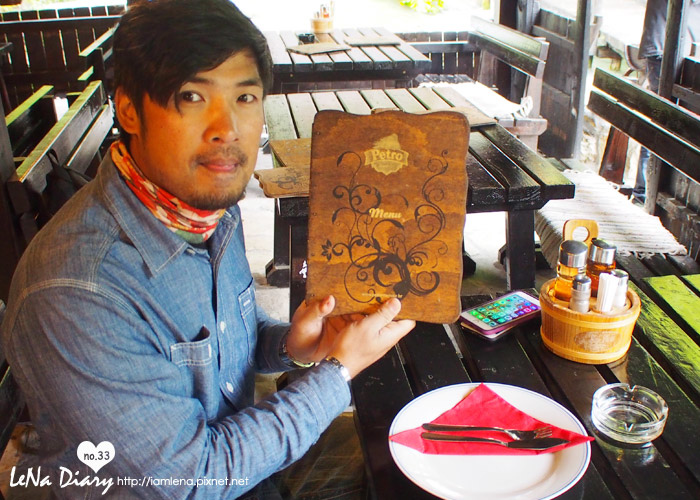 Petro
Menu
no.33
LeNa Diary http://iamlena.pixnet.net